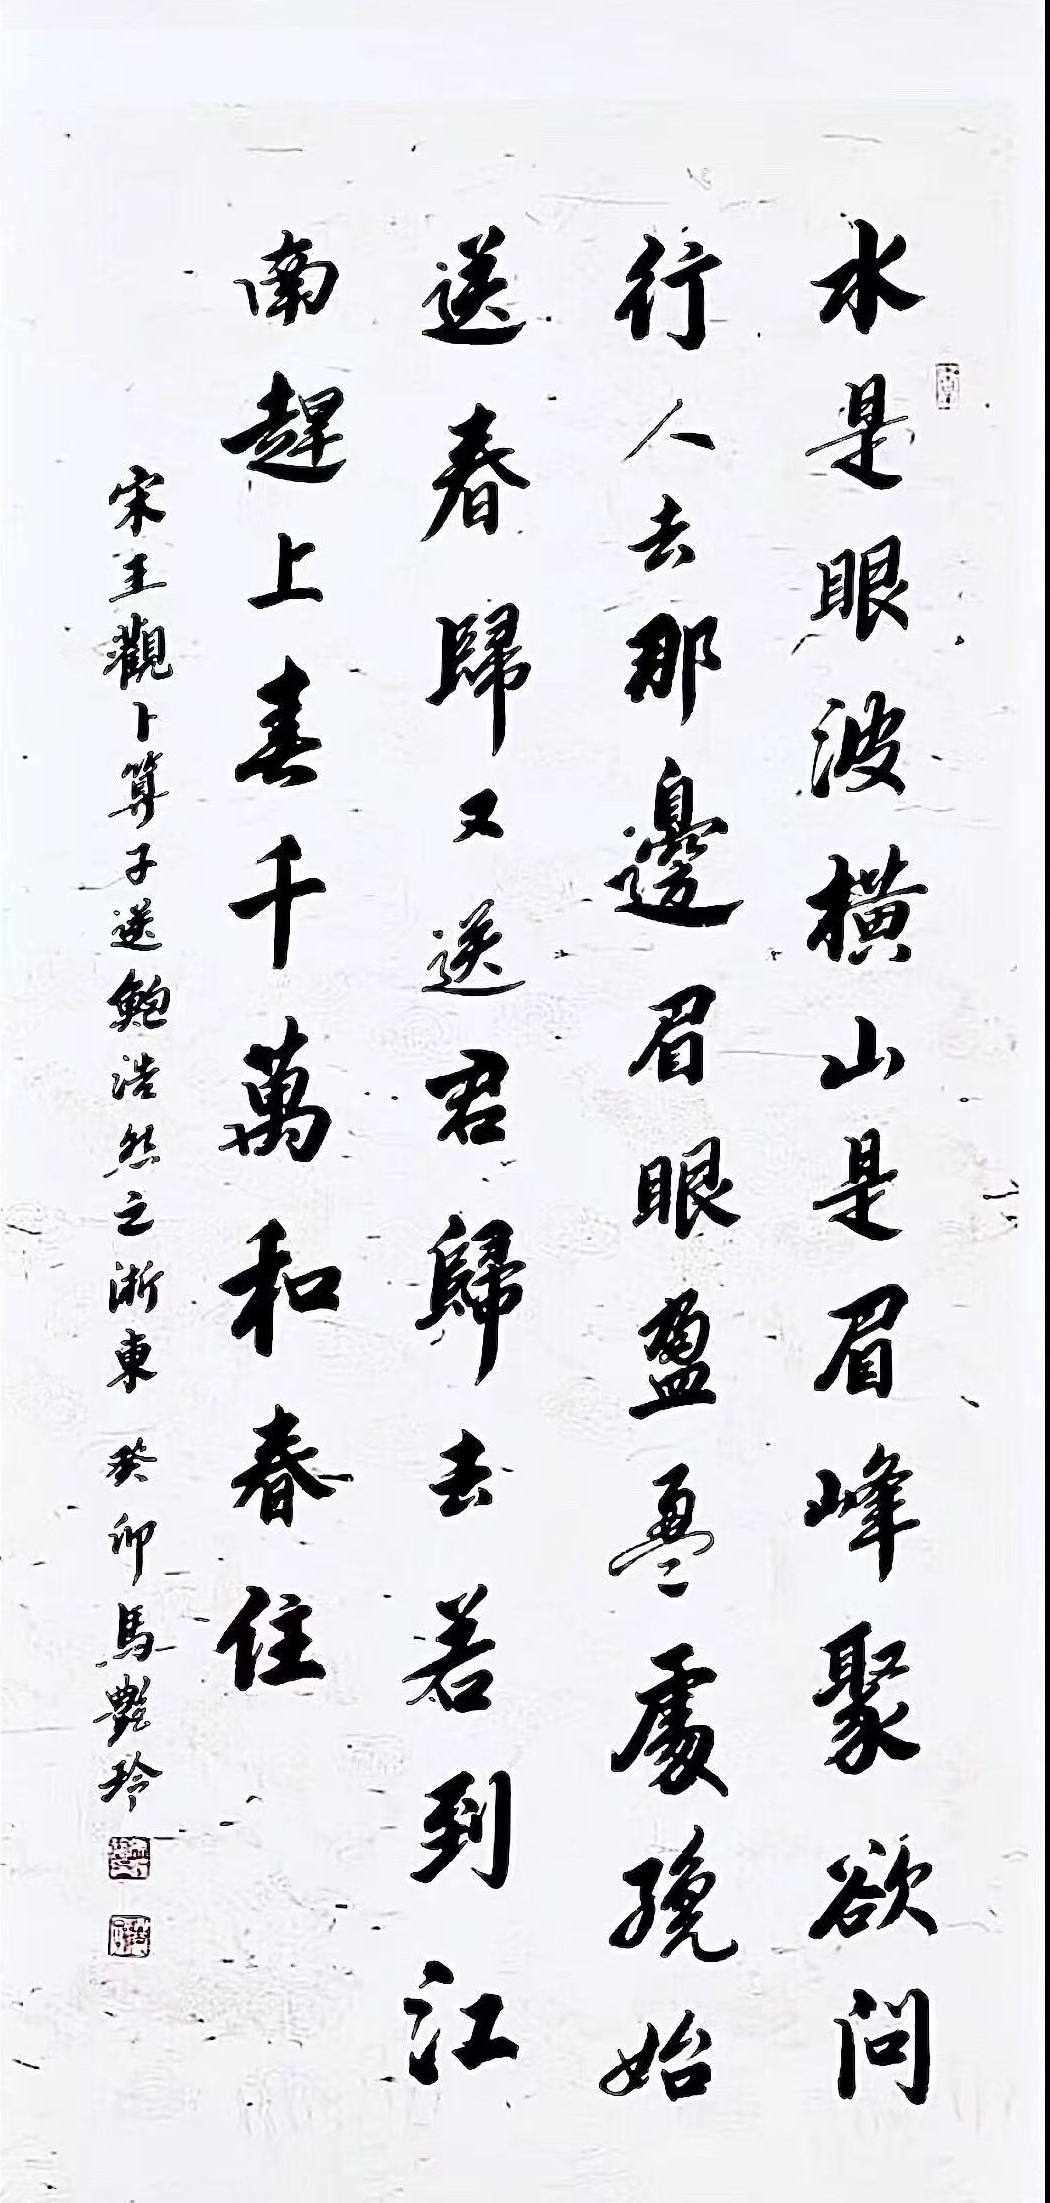 水是眼波橫山是眉峰聚欲問
行人去那邊眉眼盈盈處纔始
送春歸又送君歸去若到江
南趕上春千萬和春住
宋王觀卜算子送鮑浩然之浙東 癸卯馬艷玲